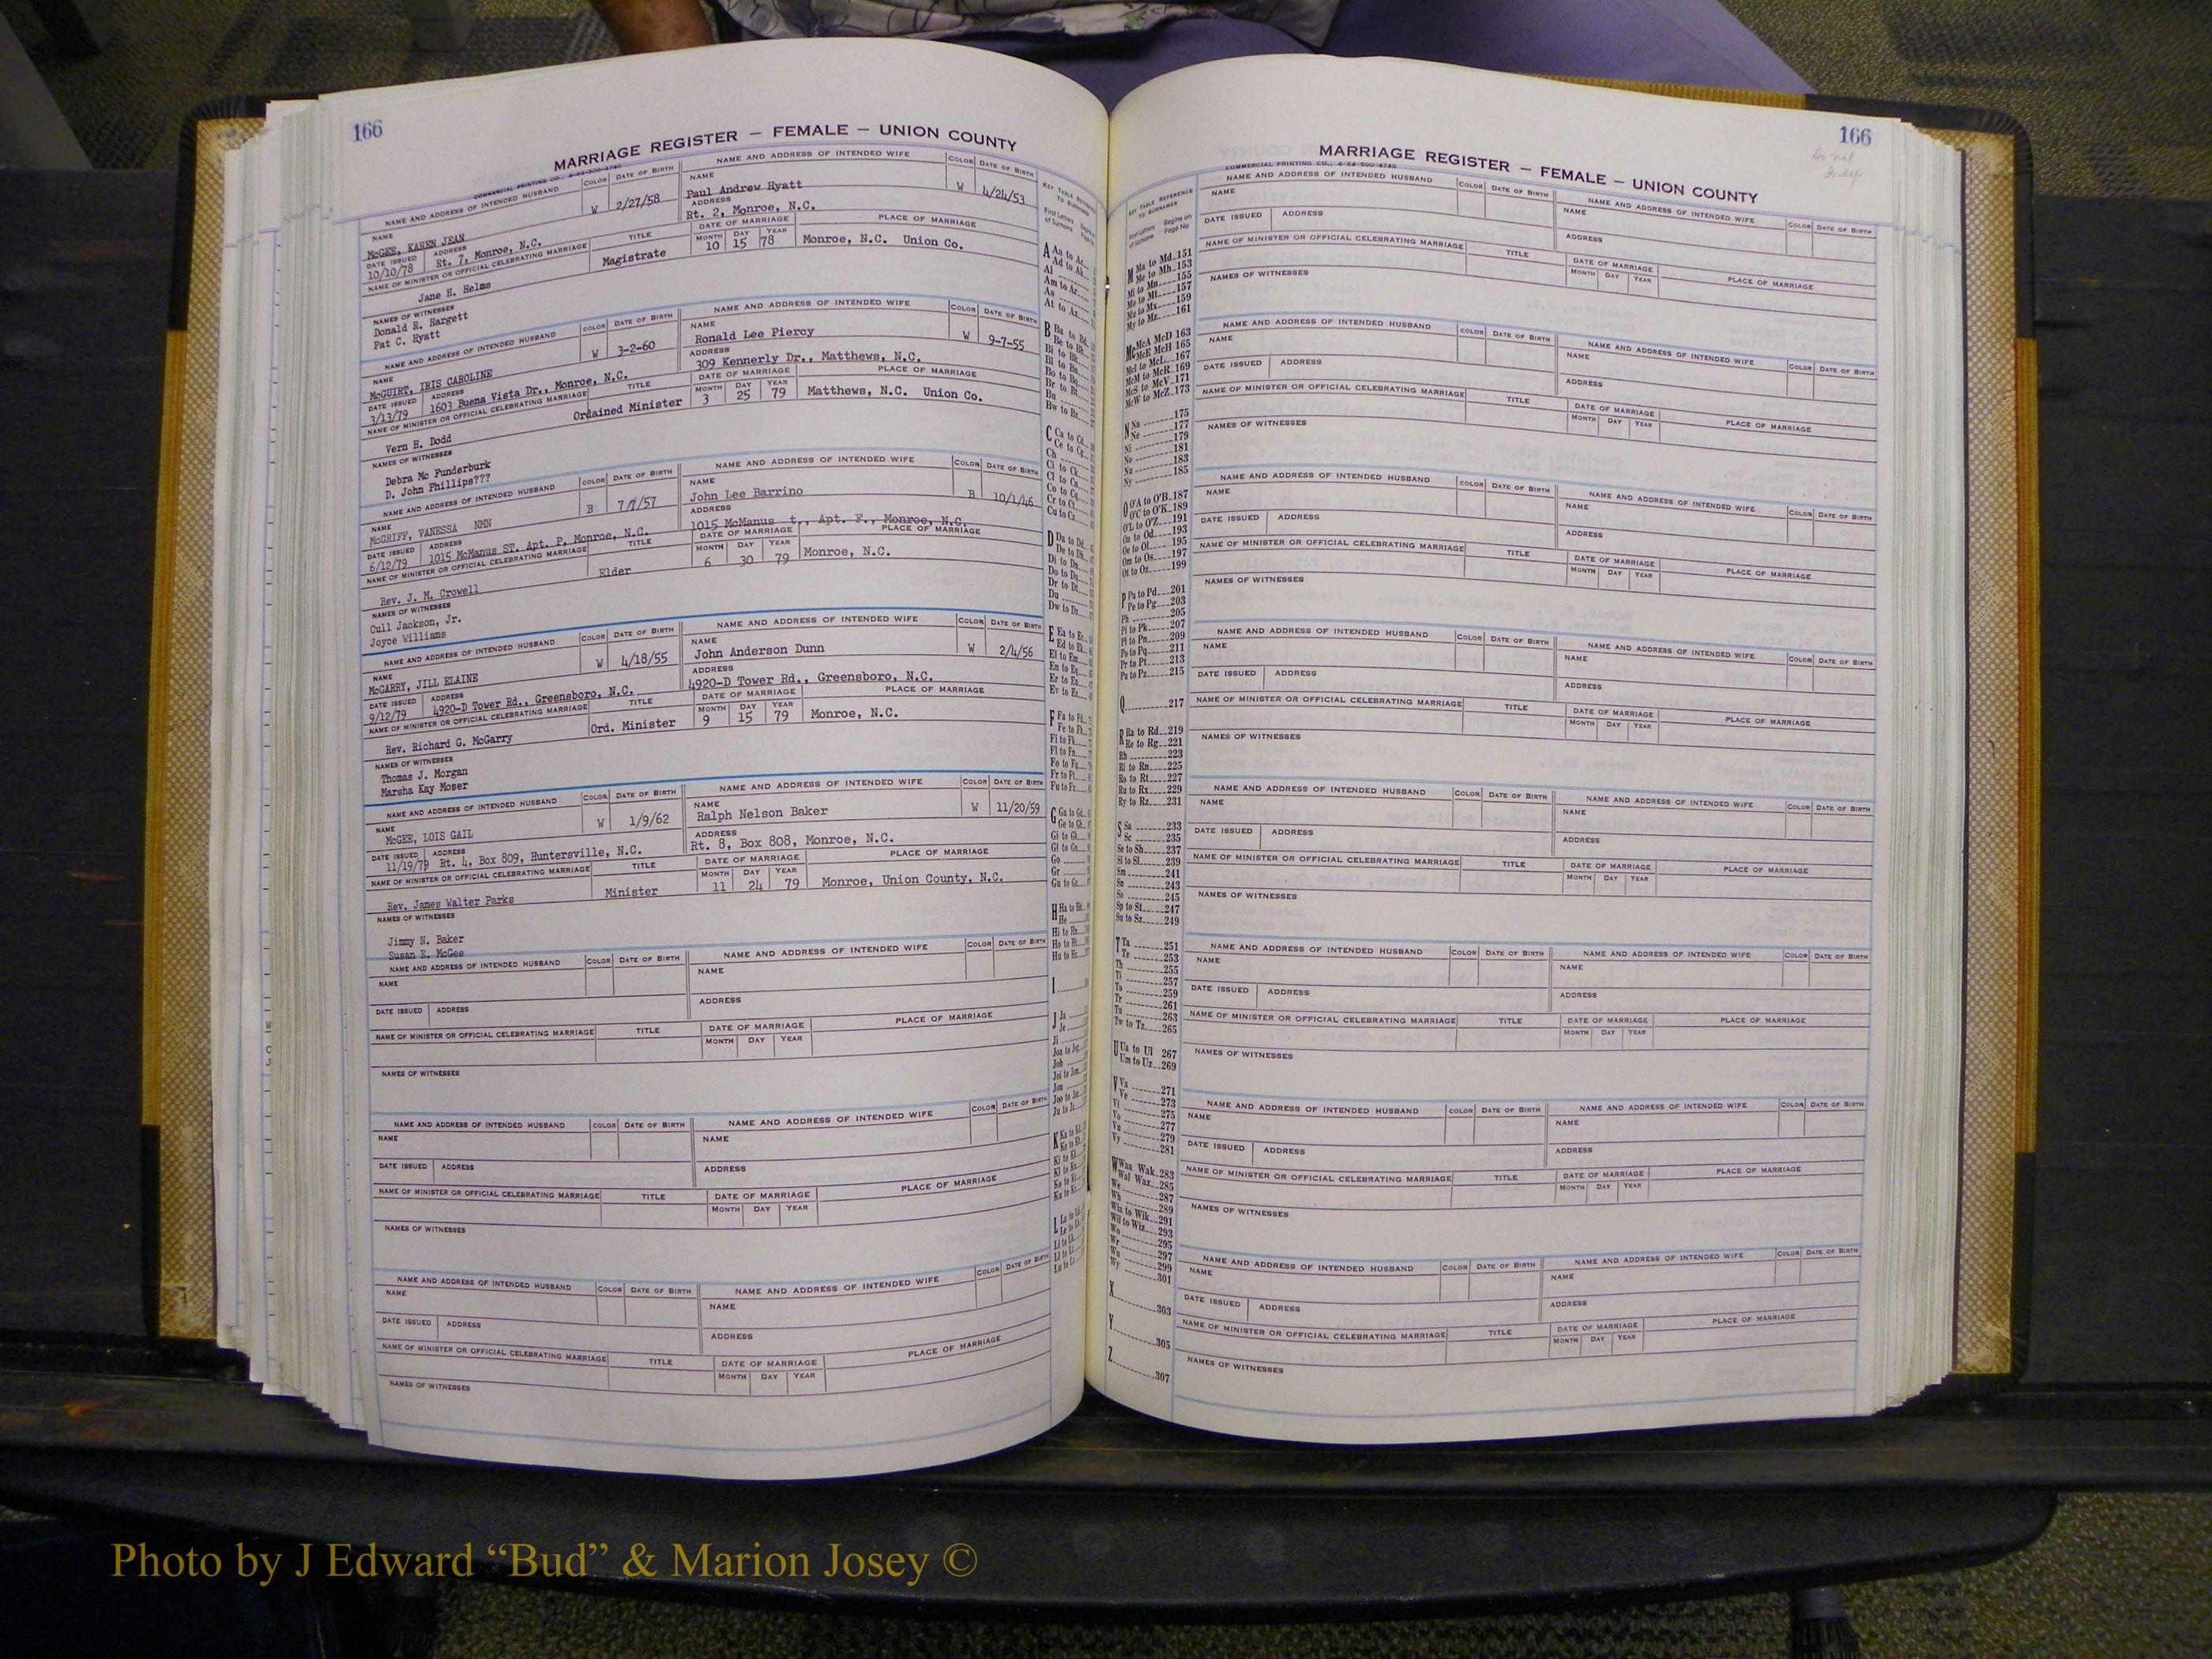 166
MARRIAGE REGISTER — FEMALE — UNION COUNTY
COMMERCIAL PRINTING CO.
NAME AND ADDRESS OF INTENDED HUSBAND COLOR DATE OF BIRTH NAME AND ADDRESS OF INTENDED WIFE COLOR DATE OF BIRTH
NAME McGEE, KAREN JEAN W 2/27/58 NAME Paul Andrew Hyatt W 4/24/53
DATE ISSUED 10/10/78 ADDRESS Rt. 7, Monroe, N.C. ADDRESS Rt. 2, Monroe, N.C.
NAME OF MINISTER OR OFFICIAL CELEBRATING MARRIAGE TITLE DATE OF MARRIAGE PLACE OF MARRIAGE
Jane H. Helms Magistrate MONTH 10 DAY 15 YEAR 78 Monroe, N.C. Union Co.
NAMES OF WITNESSES
Donald R. Hargett
Pat C. Hyatt
NAME AND ADDRESS OF INTENDED HUSBAND COLOR DATE OF BIRTH NAME AND ADDRESS OF INTENDED WIFE COLOR DATE OF BIRTH
NAME McGUIRT, IRIS CAROLINE W 3-2-60 NAME Ronald Lee Piercy W 9-7-55
DATE ISSUED 3/13/79 ADDRESS 1603 Buena Vista Dr., Monroe, N.C. ADDRESS 309 Kennerly Dr., Matthews, N.C.
NAME OF MINISTER OR OFFICIAL CELEBRATING MARRIAGE TITLE DATE OF MARRIAGE PLACE OF MARRIAGE
Vern H. Dodd Ordained Minister MONTH 3 DAY 25 YEAR 79 Matthews, N.C. Union Co.
NAMES OF WITNESSES
Debra Mc Funderburk
D. John Phillips???
NAME AND ADDRESS OF INTENDED HUSBAND COLOR DATE OF BIRTH NAME AND ADDRESS OF INTENDED WIFE COLOR DATE OF BIRTH
NAME McGRIFF, VANESSA NMN B 7/7/57 NAME John Lee Barrino B 10/1/46
DATE ISSUED 6/12/79 ADDRESS 1015 McManus ST. Apt. P, Monroe, N.C. ADDRESS 1015 McManus t., Apt. F., Monroe, N.C.
NAME OF MINISTER OR OFFICIAL CELEBRATING MARRIAGE TITLE DATE OF MARRIAGE PLACE OF MARRIAGE
Rev. J. M. Crowell Elder MONTH 6 DAY 30 YEAR 79 Monroe, N.C.
NAMES OF WITNESSES
Cull Jackson, Jr.
Joyce Williams
NAME AND ADDRESS OF INTENDED HUSBAND COLOR DATE OF BIRTH NAME AND ADDRESS OF INTENDED WIFE COLOR DATE OF BIRTH
NAME McGARRY, JILL ELAINE W 4/18/55 NAME John Anderson Dunn W 2/4/56
DATE ISSUED 9/12/79 ADDRESS 4920-D Tower Rd., Greensboro, N.C. ADDRESS 4920-D Tower Rd., Greensboro, N.C.
NAME OF MINISTER OR OFFICIAL CELEBRATING MARRIAGE TITLE DATE OF MARRIAGE PLACE OF MARRIAGE
Rev. Richard G. McGarry Ord. Minister MONTH 9 DAY 15 YEAR 79 Monroe, N.C.
NAMES OF WITNESSES
Thomas J. Morgan
Marsha Kay Moser
NAME AND ADDRESS OF INTENDED HUSBAND COLOR DATE OF BIRTH NAME AND ADDRESS OF INTENDED WIFE COLOR DATE OF BIRTH
NAME McGEE, LOIS GAIL W 1/9/62 NAME Ralph Nelson Baker W 11/20/59
DATE ISSUED 11/19/79 ADDRESS Rt. 4, Box 809, Huntersville, N.C. ADDRESS Rt. 8, Box 808, Monroe, N.C.
NAME OF MINISTER OR OFFICIAL CELEBRATING MARRIAGE TITLE DATE OF MARRIAGE PLACE OF MARRIAGE
Rev. James Walter Parks Minister MONTH 11 DAY 24 YEAR 79 Monroe, Union County, N.C.
NAMES OF WITNESSES
Jimmy N. Baker
Susan E. McGee
NAME AND ADDRESS OF INTENDED HUSBAND COLOR DATE OF BIRTH NAME AND ADDRESS OF INTENDED WIFE COLOR DATE OF BIRTH
NAME NAME
DATE ISSUED ADDRESS ADDRESS
NAME OF MINISTER OR OFFICIAL CELEBRATING MARRIAGE TITLE DATE OF MARRIAGE PLACE OF MARRIAGE
MONTH DAY YEAR
NAMES OF WITNESSES
NAME AND ADDRESS OF INTENDED HUSBAND COLOR DATE OF BIRTH NAME AND ADDRESS OF INTENDED WIFE COLOR DATE OF BIRTH
NAME NAME
DATE ISSUED ADDRESS ADDRESS
NAME OF MINISTER OR OFFICIAL CELEBRATING MARRIAGE TITLE DATE OF MARRIAGE PLACE OF MARRIAGE
MONTH DAY YEAR
NAMES OF WITNESSES
NAME AND ADDRESS OF INTENDED HUSBAND COLOR DATE OF BIRTH NAME AND ADDRESS OF INTENDED WIFE COLOR DATE OF BIRTH
NAME NAME
DATE ISSUED ADDRESS ADDRESS
NAME OF MINISTER OR OFFICIAL CELEBRATING MARRIAGE TITLE DATE OF MARRIAGE PLACE OF MARRIAGE
MONTH DAY YEAR
NAMES OF WITNESSES
166
MARRIAGE REGISTER — FEMALE — UNION COUNTY
COMMERCIAL PRINTING CO.
M Ma to Md 151
Me to Mh 153
Mi to Mn 155
Mo to Mt 157
Mu to Mx 159
My to Mz 161
McA McD 163
McE McH 165
McI to McL 167
McM to McR 169
McS to McV 171
McW to McZ 173
N Na 175
Ne 177
Ni 179
No 181
Nu 183
Ny 185
O O'A to O'B 187
O'C to O'K 189
O'L to O'Z 191
Oa to Od 193
Oe to Ol 195
Om to Os 197
Ot to Oz 199
P Pa to Pd 201
Pe to Pg 203
Ph 205
Pi to Pk 207
Pl to Pn 209
Po to Pq 211
Pr to Pt 213
Pu to Pz 215
Q 217
R Ra to Rd 219
Re to Rg 221
Rh 223
Ri to Rn 225
Ro to Rt 227
Ru to Rx 229
Ry to Rz 231
S Sa 233
Sc 235
Se to Sh 237
Si to Sl 239
Sm 241
Sn 243
So 245
Sp to St 247
Su to Sz 249
T Ta 251
Te 253
Th 255
Ti 257
To 259
Tr 261
Tu 263
Tw to Tz 265
U Ua to Ul 267
Um to Uz 269
V Va 271
Ve 273
Vi 275
Vo 277
Vu 279
Vy 281
W Waa Wak 283
Wal Waz 285
We 287
Wh 289
Wia to Wik 291
Wil to Wiz 293
Wo 295
Wr 297
Wu 299
Wy 301
X 303
Y 305
Z 307
NAME AND ADDRESS OF INTENDED HUSBAND COLOR DATE OF BIRTH NAME AND ADDRESS OF INTENDED WIFE COLOR DATE OF BIRTH
NAME NAME
DATE ISSUED ADDRESS ADDRESS
NAME OF MINISTER OR OFFICIAL CELEBRATING MARRIAGE TITLE DATE OF MARRIAGE PLACE OF MARRIAGE
MONTH DAY YEAR
NAMES OF WITNESSES
NAME AND ADDRESS OF INTENDED HUSBAND COLOR DATE OF BIRTH NAME AND ADDRESS OF INTENDED WIFE COLOR DATE OF BIRTH
NAME NAME
DATE ISSUED ADDRESS ADDRESS
NAME OF MINISTER OR OFFICIAL CELEBRATING MARRIAGE TITLE DATE OF MARRIAGE PLACE OF MARRIAGE
MONTH DAY YEAR
NAMES OF WITNESSES
NAME AND ADDRESS OF INTENDED HUSBAND COLOR DATE OF BIRTH NAME AND ADDRESS OF INTENDED WIFE COLOR DATE OF BIRTH
NAME NAME
DATE ISSUED ADDRESS ADDRESS
NAME OF MINISTER OR OFFICIAL CELEBRATING MARRIAGE TITLE DATE OF MARRIAGE PLACE OF MARRIAGE
MONTH DAY YEAR
NAMES OF WITNESSES
NAME AND ADDRESS OF INTENDED HUSBAND COLOR DATE OF BIRTH NAME AND ADDRESS OF INTENDED WIFE COLOR DATE OF BIRTH
NAME NAME
DATE ISSUED ADDRESS ADDRESS
NAME OF MINISTER OR OFFICIAL CELEBRATING MARRIAGE TITLE DATE OF MARRIAGE PLACE OF MARRIAGE
MONTH DAY YEAR
NAMES OF WITNESSES
NAME AND ADDRESS OF INTENDED HUSBAND COLOR DATE OF BIRTH NAME AND ADDRESS OF INTENDED WIFE COLOR DATE OF BIRTH
NAME NAME
DATE ISSUED ADDRESS ADDRESS
NAME OF MINISTER OR OFFICIAL CELEBRATING MARRIAGE TITLE DATE OF MARRIAGE PLACE OF MARRIAGE
MONTH DAY YEAR
NAMES OF WITNESSES
NAME AND ADDRESS OF INTENDED HUSBAND COLOR DATE OF BIRTH NAME AND ADDRESS OF INTENDED WIFE COLOR DATE OF BIRTH
NAME NAME
DATE ISSUED ADDRESS ADDRESS
NAME OF MINISTER OR OFFICIAL CELEBRATING MARRIAGE TITLE DATE OF MARRIAGE PLACE OF MARRIAGE
MONTH DAY YEAR
NAMES OF WITNESSES
NAME AND ADDRESS OF INTENDED HUSBAND COLOR DATE OF BIRTH NAME AND ADDRESS OF INTENDED WIFE COLOR DATE OF BIRTH
NAME NAME
DATE ISSUED ADDRESS ADDRESS
NAME OF MINISTER OR OFFICIAL CELEBRATING MARRIAGE TITLE DATE OF MARRIAGE PLACE OF MARRIAGE
MONTH DAY YEAR
NAMES OF WITNESSES
NAME AND ADDRESS OF INTENDED HUSBAND COLOR DATE OF BIRTH NAME AND ADDRESS OF INTENDED WIFE COLOR DATE OF BIRTH
NAME NAME
DATE ISSUED ADDRESS ADDRESS
NAME OF MINISTER OR OFFICIAL CELEBRATING MARRIAGE TITLE DATE OF MARRIAGE PLACE OF MARRIAGE
MONTH DAY YEAR
NAMES OF WITNESSES
Photo by J Edward “Bud” & Marion Josey ©